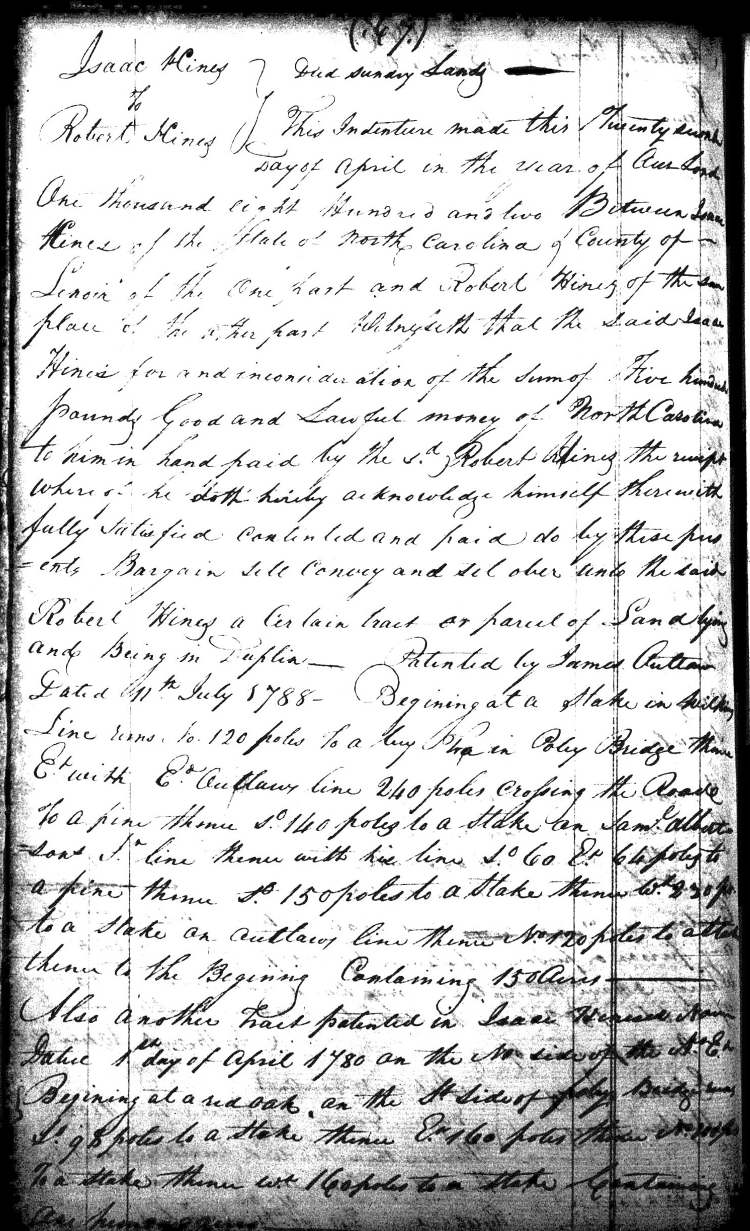 Isaac Hines Deed sundry Lands
To
Robert Hines This Indenture made this Twenty second
Day of April in the year of Our Lord
One thousand eight Hundred and two Between Isaac
Hines of the State of North Carolina & County of
Lenoir of the One part and Robert Hines of the sam
place of the other part Witnesseth that the said Isaac
Hines for and in consideration of the sum of Five hundred
pounds Good and Lawful money of North Carolina
to him in hand paid by the s.d Robert Hines the receipt
where of he doth hereby acknowledge himself therewith
fully Satisfied contented and paid do by these pres
=ents Bargain sell Convey and set over unto the said
Robert Hines a Certain tract or parcel of Land lying
and Being in Duplin Patented by James Outlaw
Dated July 1788 - Begining at a Stake in
Line runs No 120 poles to a in Poley Bridge thence
Et with Ed Outlaws line 240 poles crossing the Road
To a pine thence So 140 poles to a Stake on Saml Albert
=sons Jr line thence with his line So 60 Et 64 poles to
a pine thence So 150 poles to a Stake thence Wt 230 po
to a Stake on Outlaws line thence No 120 poles to a Stake
thence to the Begining Containing 150 Acres
Also another Tract patented in Isaac Hineses Name
Dated 1st day of April 1780 on the No side of the No Et
Begining at a red oak on the St side of poley Bridge runs
So 98 poles to a Stake thence Et 160 poles thence No
To a Stake thence Wt 160 poles to a Stake Containing